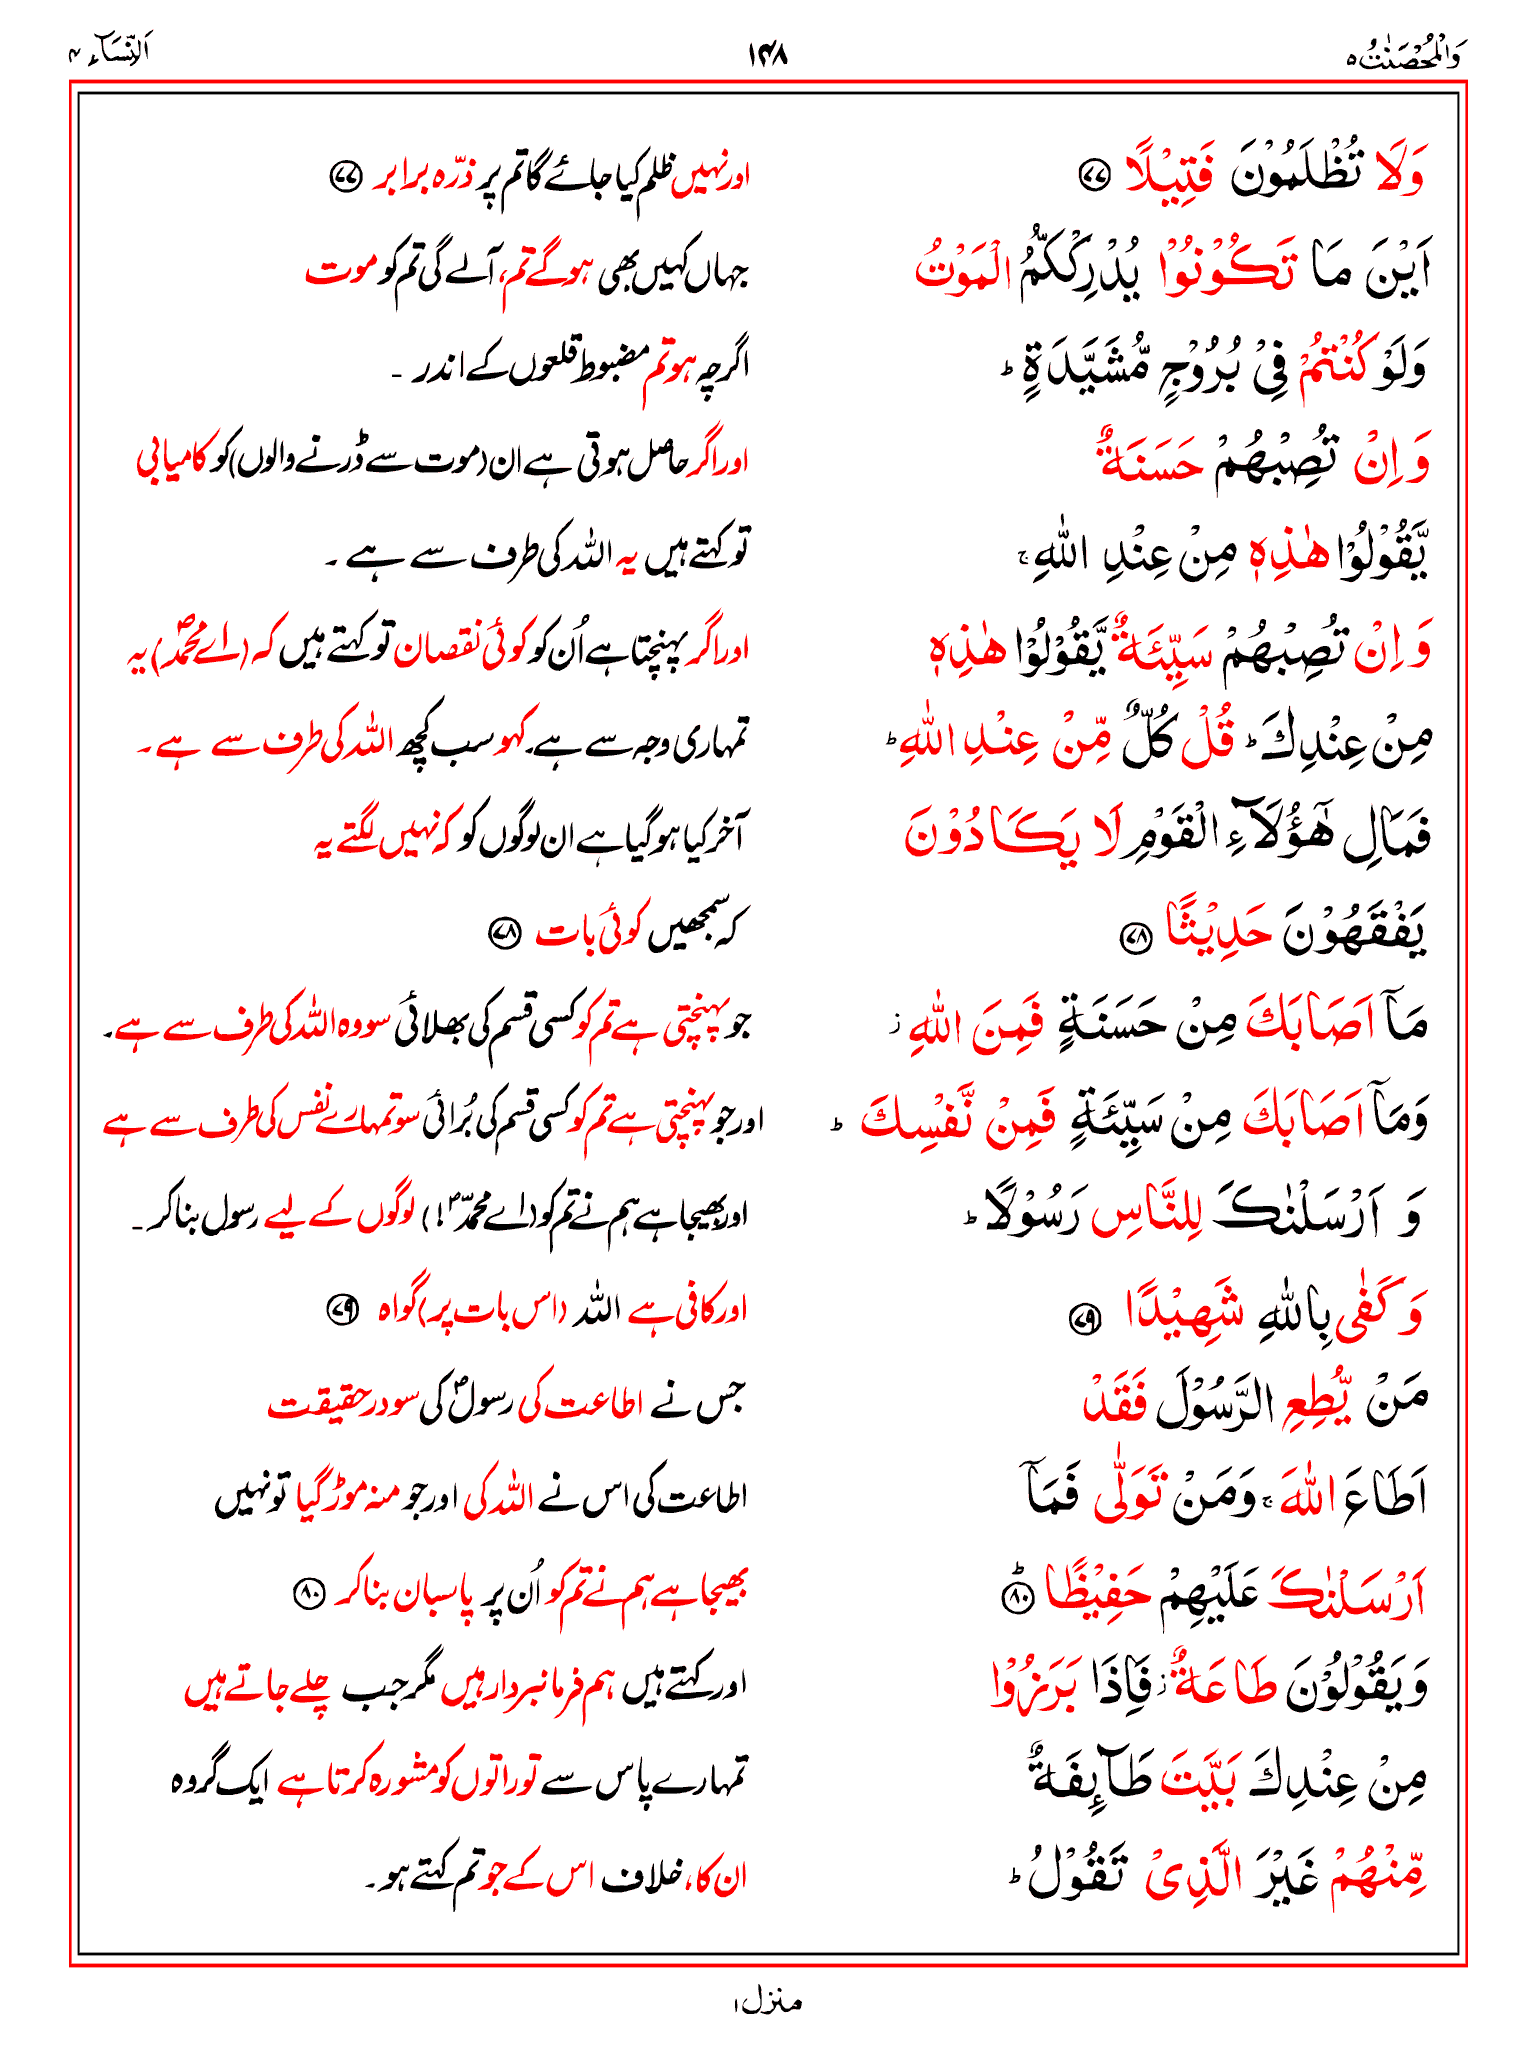 وَالْمُحْصَنٰتُ ۵ ۱۴۸ اَلنِّسَآء ۴
وَلَا تُظْلَمُوْنَ فَتِيْلًا ۷۷ اور نہیں ظلم کیا جائے گا تم پر ذرّہ برابر ۷۷
اَيْنَ مَا تَكُوْنُوْا يُدْرِكْكُّمُ الْمَوْتُ جہاں کہیں بھی ہو گے تم، آلے گی تم کو موت
وَلَوْ كُنْتُمْ فِيْ بُرُوْجٍ مُّشَيَّدَةٍ ؕ اگرچہ ہو تم مضبوط قلعوں کے اندر ۔
وَاِنْ تُصِبْهُمْ حَسَنَةٌ اور اگر حاصل ہوتی ہے ان (موت سے ڈرنے والوں) کو کامیابی
يَّقُوْلُوْا هٰذِهٖ مِنْ عِنْدِ اللّٰهِ ۚ تو کہتے ہیں یہ اللہ کی طرف سے ہے ۔
وَاِنْ تُصِبْهُمْ سَيِّئَةٌ يَّقُوْلُوْا هٰذِهٖ اور اگر پہنچتا ہے اُن کو کوئی نقصان تو کہتے ہیں کہ (اے محمدؐ) یہ
مِنْ عِنْدِكَ ؕ قُلْ كُلٌّ مِّنْ عِنْدِ اللّٰهِ ؕ تمہاری وجہ سے ہے۔ کہو سب کچھ اللہ کی طرف سے ہے ۔
فَمَالِ هٰٓؤُلَآءِ الْقَوْمِ لَا يَكَادُوْنَ آخر کیا ہو گیا ہے ان لوگوں کو کہ نہیں لگتے یہ
يَفْقَهُوْنَ حَدِيْثًا ۷۸ کہ سمجھیں کوئی بات ۷۸
مَآ اَصَابَكَ مِنْ حَسَنَةٍ فَمِنَ اللّٰهِ ز جو پہنچتی ہے تم کو کسی قسم کی بھلائی سو وہ اللہ کی طرف سے ہے۔
وَمَآ اَصَابَكَ مِنْ سَيِّئَةٍ فَمِنْ نَّفْسِكَ ؕ اور جو پہنچتی ہے تم کو کسی قسم کی بُرائی سو تمہارے نفس کی طرف سے ہے
وَ اَرْسَلْنٰكَ لِلنَّاسِ رَسُوْلًا ؕ اور بھیجا ہے ہم نے تم کو (اے محمدؐ!) لوگوں کے لیے رسول بنا کر ۔
وَكَفٰى بِاللّٰهِ شَهِيْدًا ۷۹ اور کافی ہے اللہ (اس بات پر) گواہ ۷۹
مَنْ يُّطِعِ الرَّسُوْلَ فَقَدْ جس نے اطاعت کی رسولؐ کی سو درحقیقت
اَطَاعَ اللّٰهَ ۚ وَمَنْ تَوَلّٰى فَمَآ اطاعت کی اس نے اللہ کی اور جو منہ موڑ گیا تو نہیں
اَرْسَلْنٰكَ عَلَيْهِمْ حَفِيْظًا ؕ ۸۰ بھیجا ہے ہم نے تم کو اُن پر پاسبان بنا کر ۸۰
وَيَقُوْلُوْنَ طَاعَةٌ ز فَاِذَا بَرَزُوْا اور کہتے ہیں ہم فرمانبردار ہیں مگر جب چلے جاتے ہیں
مِنْ عِنْدِكَ بَيَّتَ طَآئِفَةٌ تمہارے پاس سے تو راتوں کو مشورہ کرتا ہے ایک گروہ
مِّنْهُمْ غَيْرَ الَّذِيْ تَقُوْلُ ؕ ان کا، خلاف اس کے جو تم کہتے ہو ۔
منزل ۱